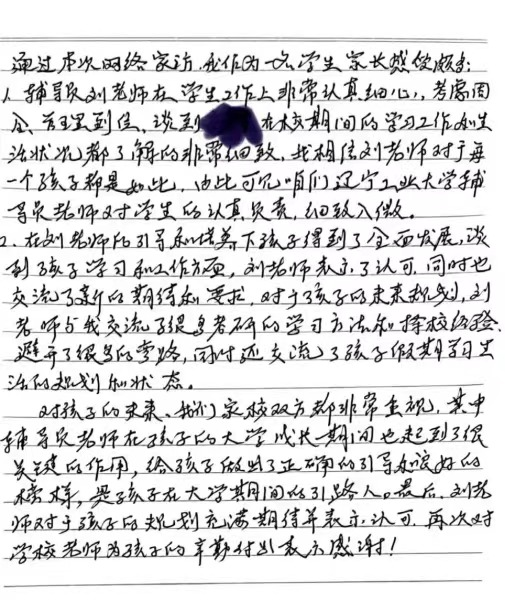 通过本次网络家访,我作为一名学生家长感受颇多:
1.辅导员刘老师在学生工作上非常认真细心,考虑周
全、管理到位,谈到 在校期间的学习工作和生
活状况都了解的非常细致,我相信刘老师对于每
一个孩子都是如此,由此可见咱们辽宁工业大学辅
导员老师对学生的认真负责,细致入微。
2.在刘老师的引导和培养下孩子得到了全面发展,谈
到孩子学习和工作方面,刘老师表示了认可,同时也
交流了新的期待和要求,对于孩子的未来规划,刘
老师与我交流了很多考研的学习方法和择校经验,
避开了很多的弯路,同时还交流了孩子假期学习生
活的规划和状态。
对孩子的未来,我们家校双方都非常重视,其中
辅导员老师在孩子的大学成长期间也起到了很
关键的作用,给孩子做出了正确的引导和良好的
榜样,是孩子在大学期间的引路人。最后,刘老
师对于孩子的规划充满期待并表示认可,再次对
学校老师为孩子的辛勤付出表示感谢!